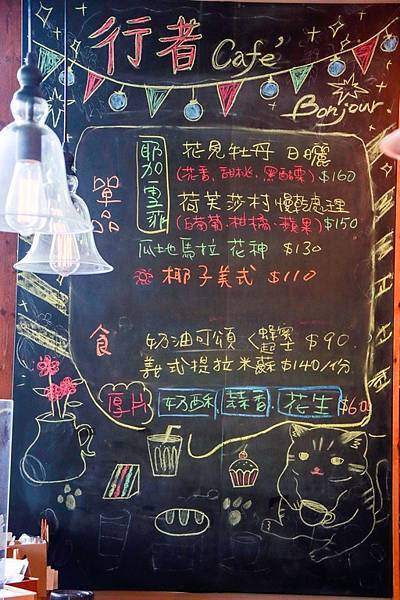 行者 Café
Bonjour
單品
耶加雪菲
花見牡丹 日曬
(花香、甜桃、黑醋栗) $160
荷芙莎村 慢龍處理
(白葡萄、柑橘、蘋果) $150
瓜地馬拉 花神 $130
椰子美式 $110
食
奶油可頌 蜂蜜 起士 $90
義式提拉米蘇 $140/份
厚片 奶酥、蒜香、花生 $60